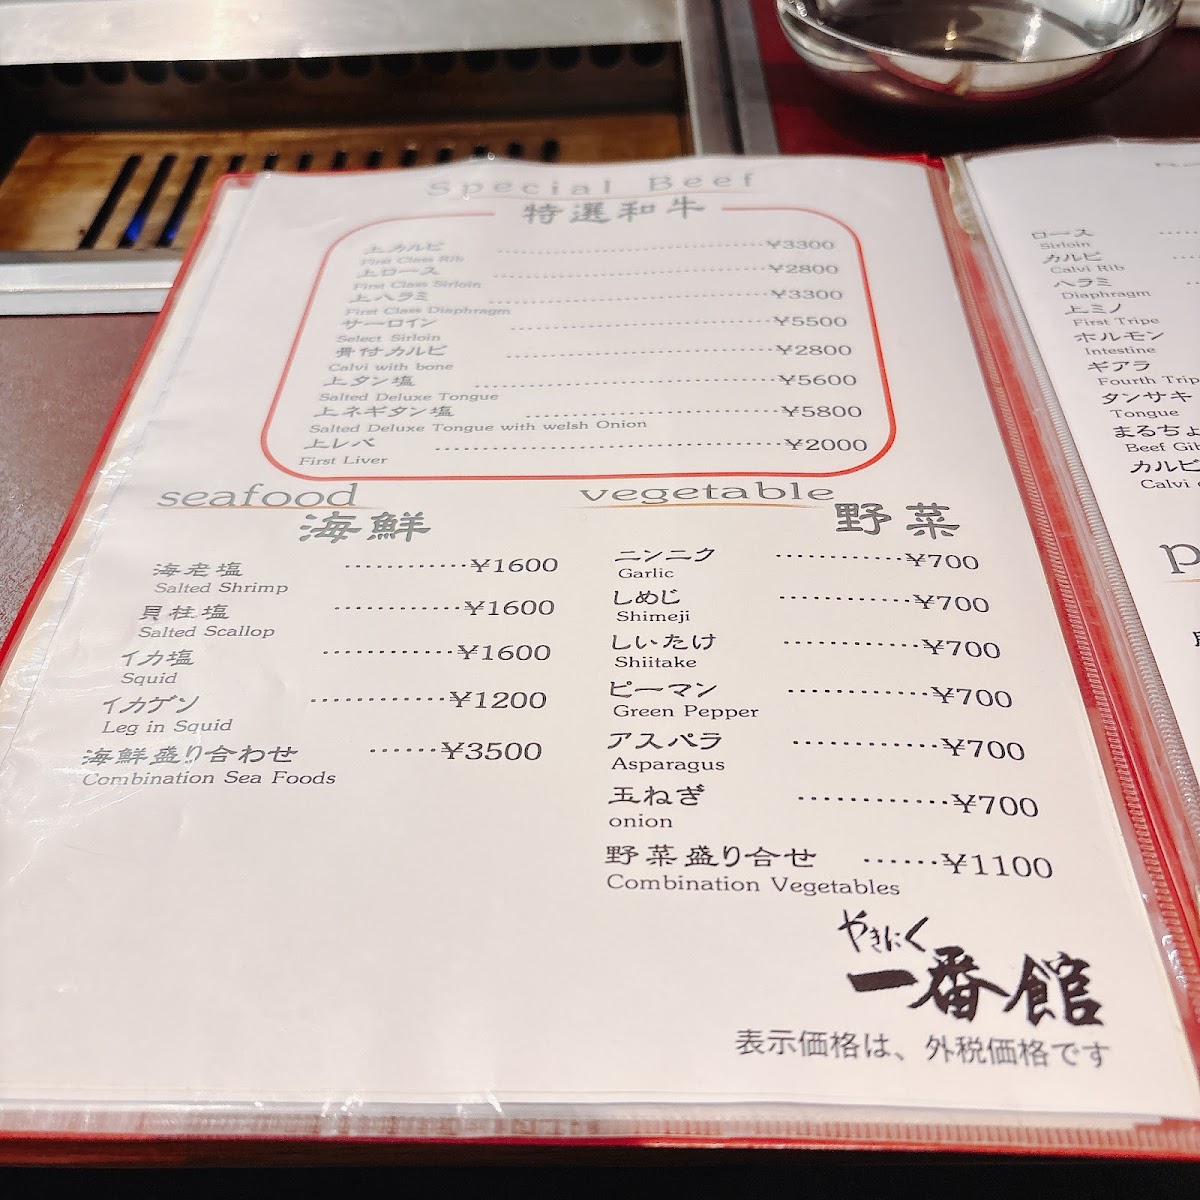 Special Beef
特選和牛
上カルビ ¥3300
First Class Rib
上ロース ¥2800
First Class Sirloin
上ハラミ ¥3300
First Class Diaphragm
サーロイン ¥5500
Select Sirloin
骨付カルビ ¥2800
Calvi with bone
上タン塩 ¥5600
Salted Deluxe Tongue
上ネギタン塩 ¥5800
Salted Deluxe Tongue with welsh Onion
上レバ ¥2000
First Liver
seafood
海鮮
海老塩 ¥1600
Salted Shrimp
貝柱塩 ¥1600
Salted Scallop
イカ塩 ¥1600
Squid
イカゲソ ¥1200
Leg in Squid
海鮮盛り合わせ ¥3500
Combination Sea Foods
vegetable
野菜
ニンニク ¥700
Garlic
しめじ ¥700
Shimeji
しいたけ ¥700
Shiitake
ピーマン ¥700
Green Pepper
アスパラ ¥700
Asparagus
玉ねぎ ¥700
onion
野菜盛り合せ ¥1100
Combination Vegetables
やきにく
一番館
表示価格は、外税価格です
ロース
Sirloin
カルビ
Calvi Rib
ハラミ
Diaphragm
上ミノ
First Tripe
ホルモン
Intestine
ギアラ
Fourth Trip
タンサキ
Tongue
まるちょ
Beef Gib
カルビ
Calvi
p